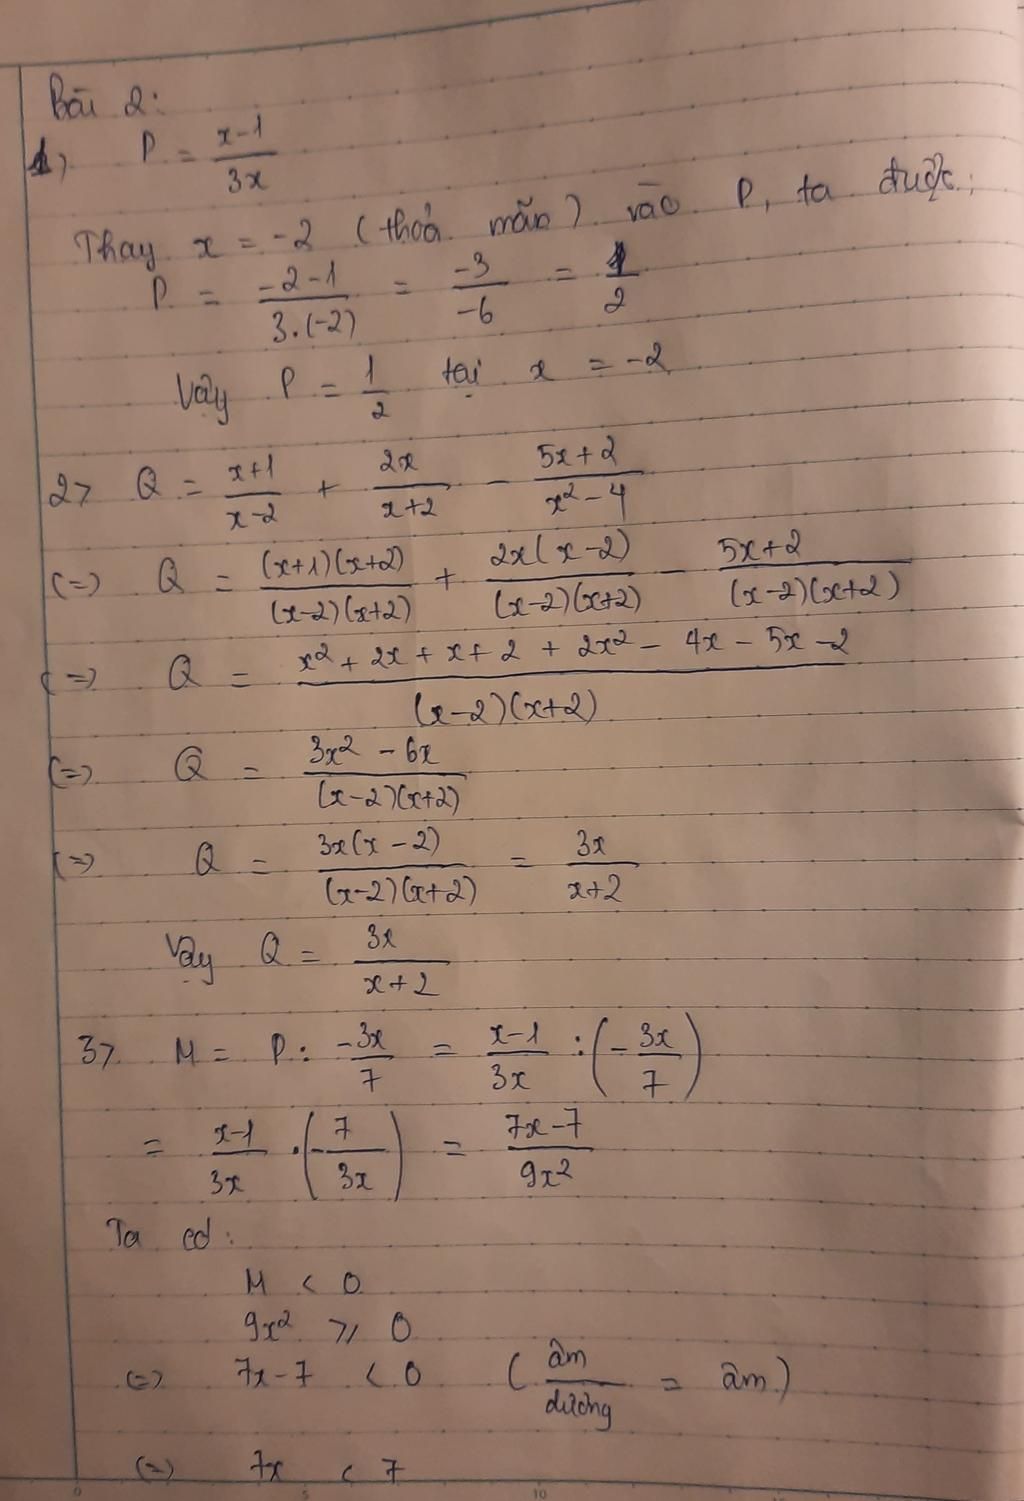 Bài 2:
1> P = (x-1)/(3x)
Thay x = -2 (thoả mãn) vào P, ta được:
P = (-2-1)/(3.(-2)) = (-3)/(-6) = 1/2
Vậy P = 1/2 tại x = -2
2> Q = (x+1)/(x-2) + 2x/(x+2) - (5x+2)/(x²-4)
(=) Q = ((x+1)(x+2))/((x-2)(x+2)) + (2x(x-2))/((x-2)(x+2)) - (5x+2)/((x-2)(x+2))
(=) Q = (x² + 2x + x + 2 + 2x² - 4x - 5x - 2)/((x-2)(x+2))
(=) Q = (3x² - 6x)/((x-2)(x+2))
(=) Q = (3x(x-2))/((x-2)(x+2)) = 3x/(x+2)
Vậy Q = 3x/(x+2)
3> M = P : -3x/7 = (x-1)/(3x) : (-3x/7)
= (x-1)/(3x) . (-7/(3x)) = (7x-7)/(9x²)
Ta có:
M < 0
9x² ≥ 0
(=) 7x-7 < 0 (âm/dương = âm)
(=) 7x < 7
0 5 10